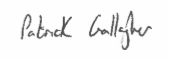 Patrick Gallagher